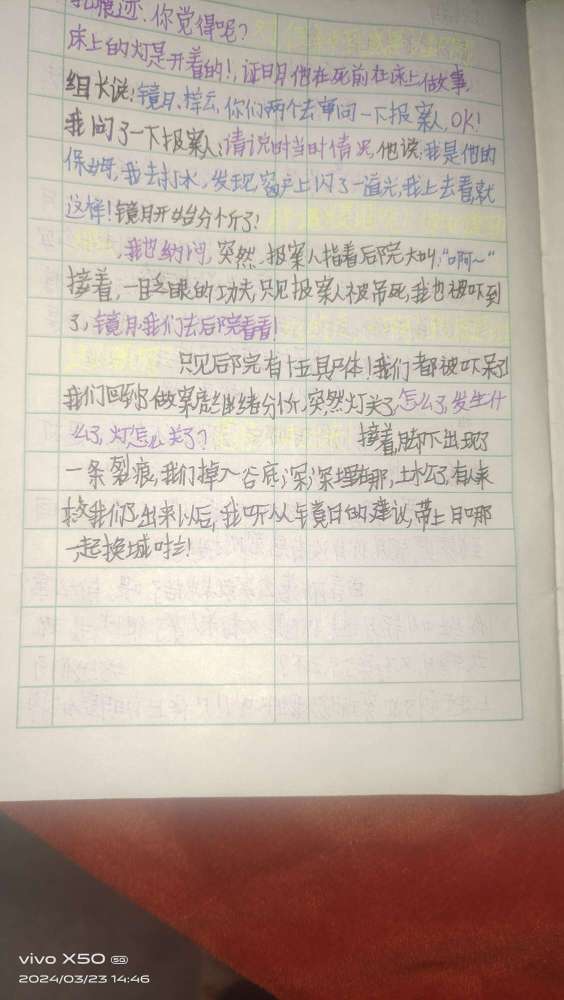 痕迹,你觉得呢?
床上的灯是开着的!,证明他在死前在床上做故事,
组长说:镜月、梓云,你们两个去审问一下报案人,OK!
我问了一下报案人:请说时当时情况,他说:我是他的
保姆,我去打水,发现,窗户上闪了一道光,我上去看就
这样!镜月开始分忻了!
,我也纳闷,突然,报案人指着后院大叫:“啊~”
接着,一眨眼的功夫,只见报案人被吊死,我也被吓到
了,镜月,我们去后院看看!
只见后院有十五具尸体!我们都被吓呆了!
我们回到了做案 分忻,突然灯关了,怎么了,发生什
么了,灯怎么关了? 接着,脚下出现了
一条裂痕,我们掉入谷底,深深埋 那,土 了,有人来
救我们了,出来以后,我听从镜月的建议,带上
一起换城
vivo X50 5G
2024/03/23 14:46